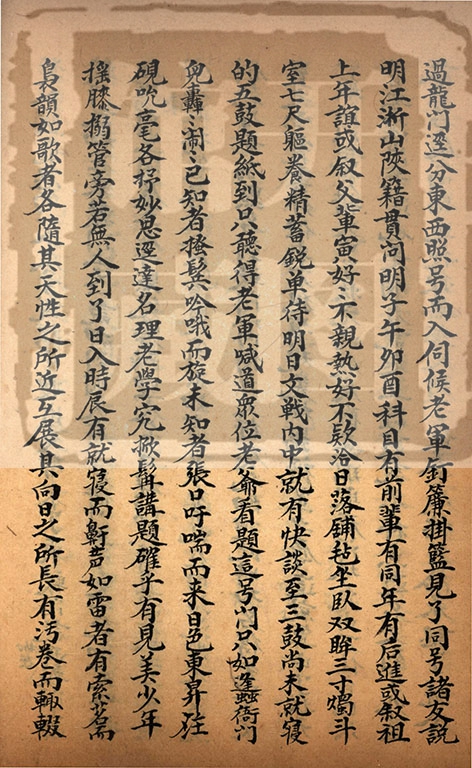 過龍门逕分東西照号而入伺候老軍釘簾掛籃見了同号諸友説
明江淅山陝籍貫问明子午卯酉科目有前輩有同年有后進或叙祖
上年誼或叙父輩寅好好不親熱好不欵洽日落鋪毡坐卧双眸三寸燭斗
室七尺軀養精蓄銳单待明日文戰内中就有快談至三鼓尚未就寝
的五鼓題紙到只聽得老軍喊道眾位老爺看題這号门只如蓬蠭衙门
兒轟轟闹闹已知者搔鬓吟哦而旋未知者張口吁喘而来日色東昇
硯吮毫各抒妙思逕達名理老學究掀髯講題確乎有見美少年
摇膝搦管旁若無人到了日入時辰有就寝而鼾声如雷者有索茗而
裊韻如歌者各隨其天性之所近互展其向日之所長有污卷而輙輟